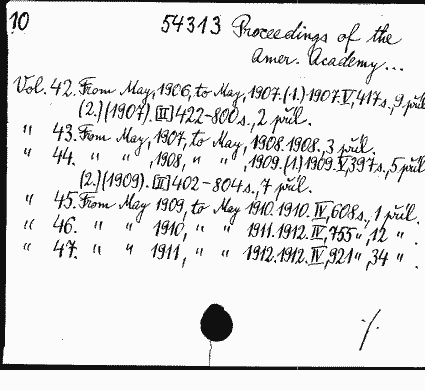 10 54313 Proceedings of the
Amer. Academy...
Vol. 42. From May, 1906, to May, 1907. (1.) 1907. V, 417 s., 9 příl.
(2.) (1907). [II] 422-800 s., 2 příl.
" 43. From May, 1907, to May, 1908. 1908. 3 příl.
" 44. " " , 1908, " " , 1909. (1.) 1909. V, 397 s., 5 příl.
(2.) (1909). [II] 402-804 s., 7 příl.
" 45. From May 1909, to May 1910. 1910. IV, 608 s., 1 příl.
" 46. " " 1910, " " 1911. 1912. IV, 755 ", 12 " .
" 47. " " 1911, " " 1912. 1912. IV, 921 ", 34 " .
./.